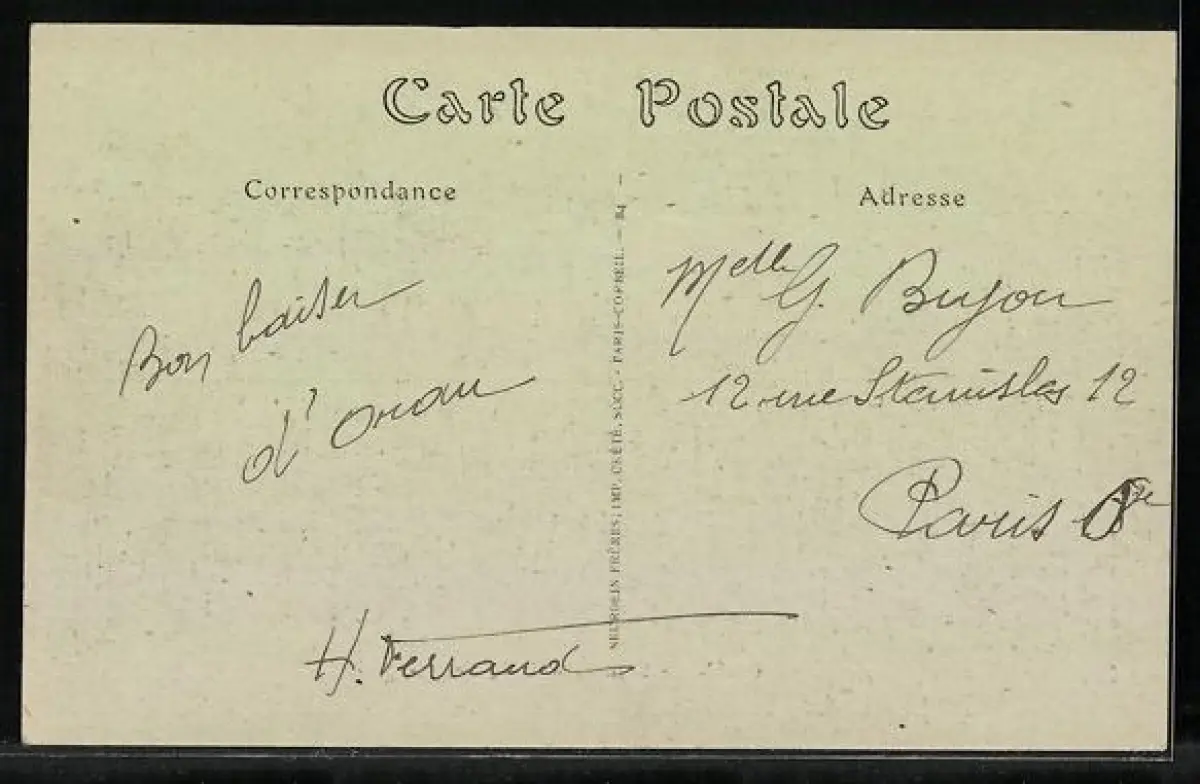 Carte Postale
Correspondance
Adresse
Bon baiser
d'Oran
H. Ferrand
NEURDEIN FRÈRES, IMP. CRÉTÉ, SUCC. - PARIS-CORBEIL. - 84
Melle G. Bujon
12 rue Stanislas 12
Paris 6e